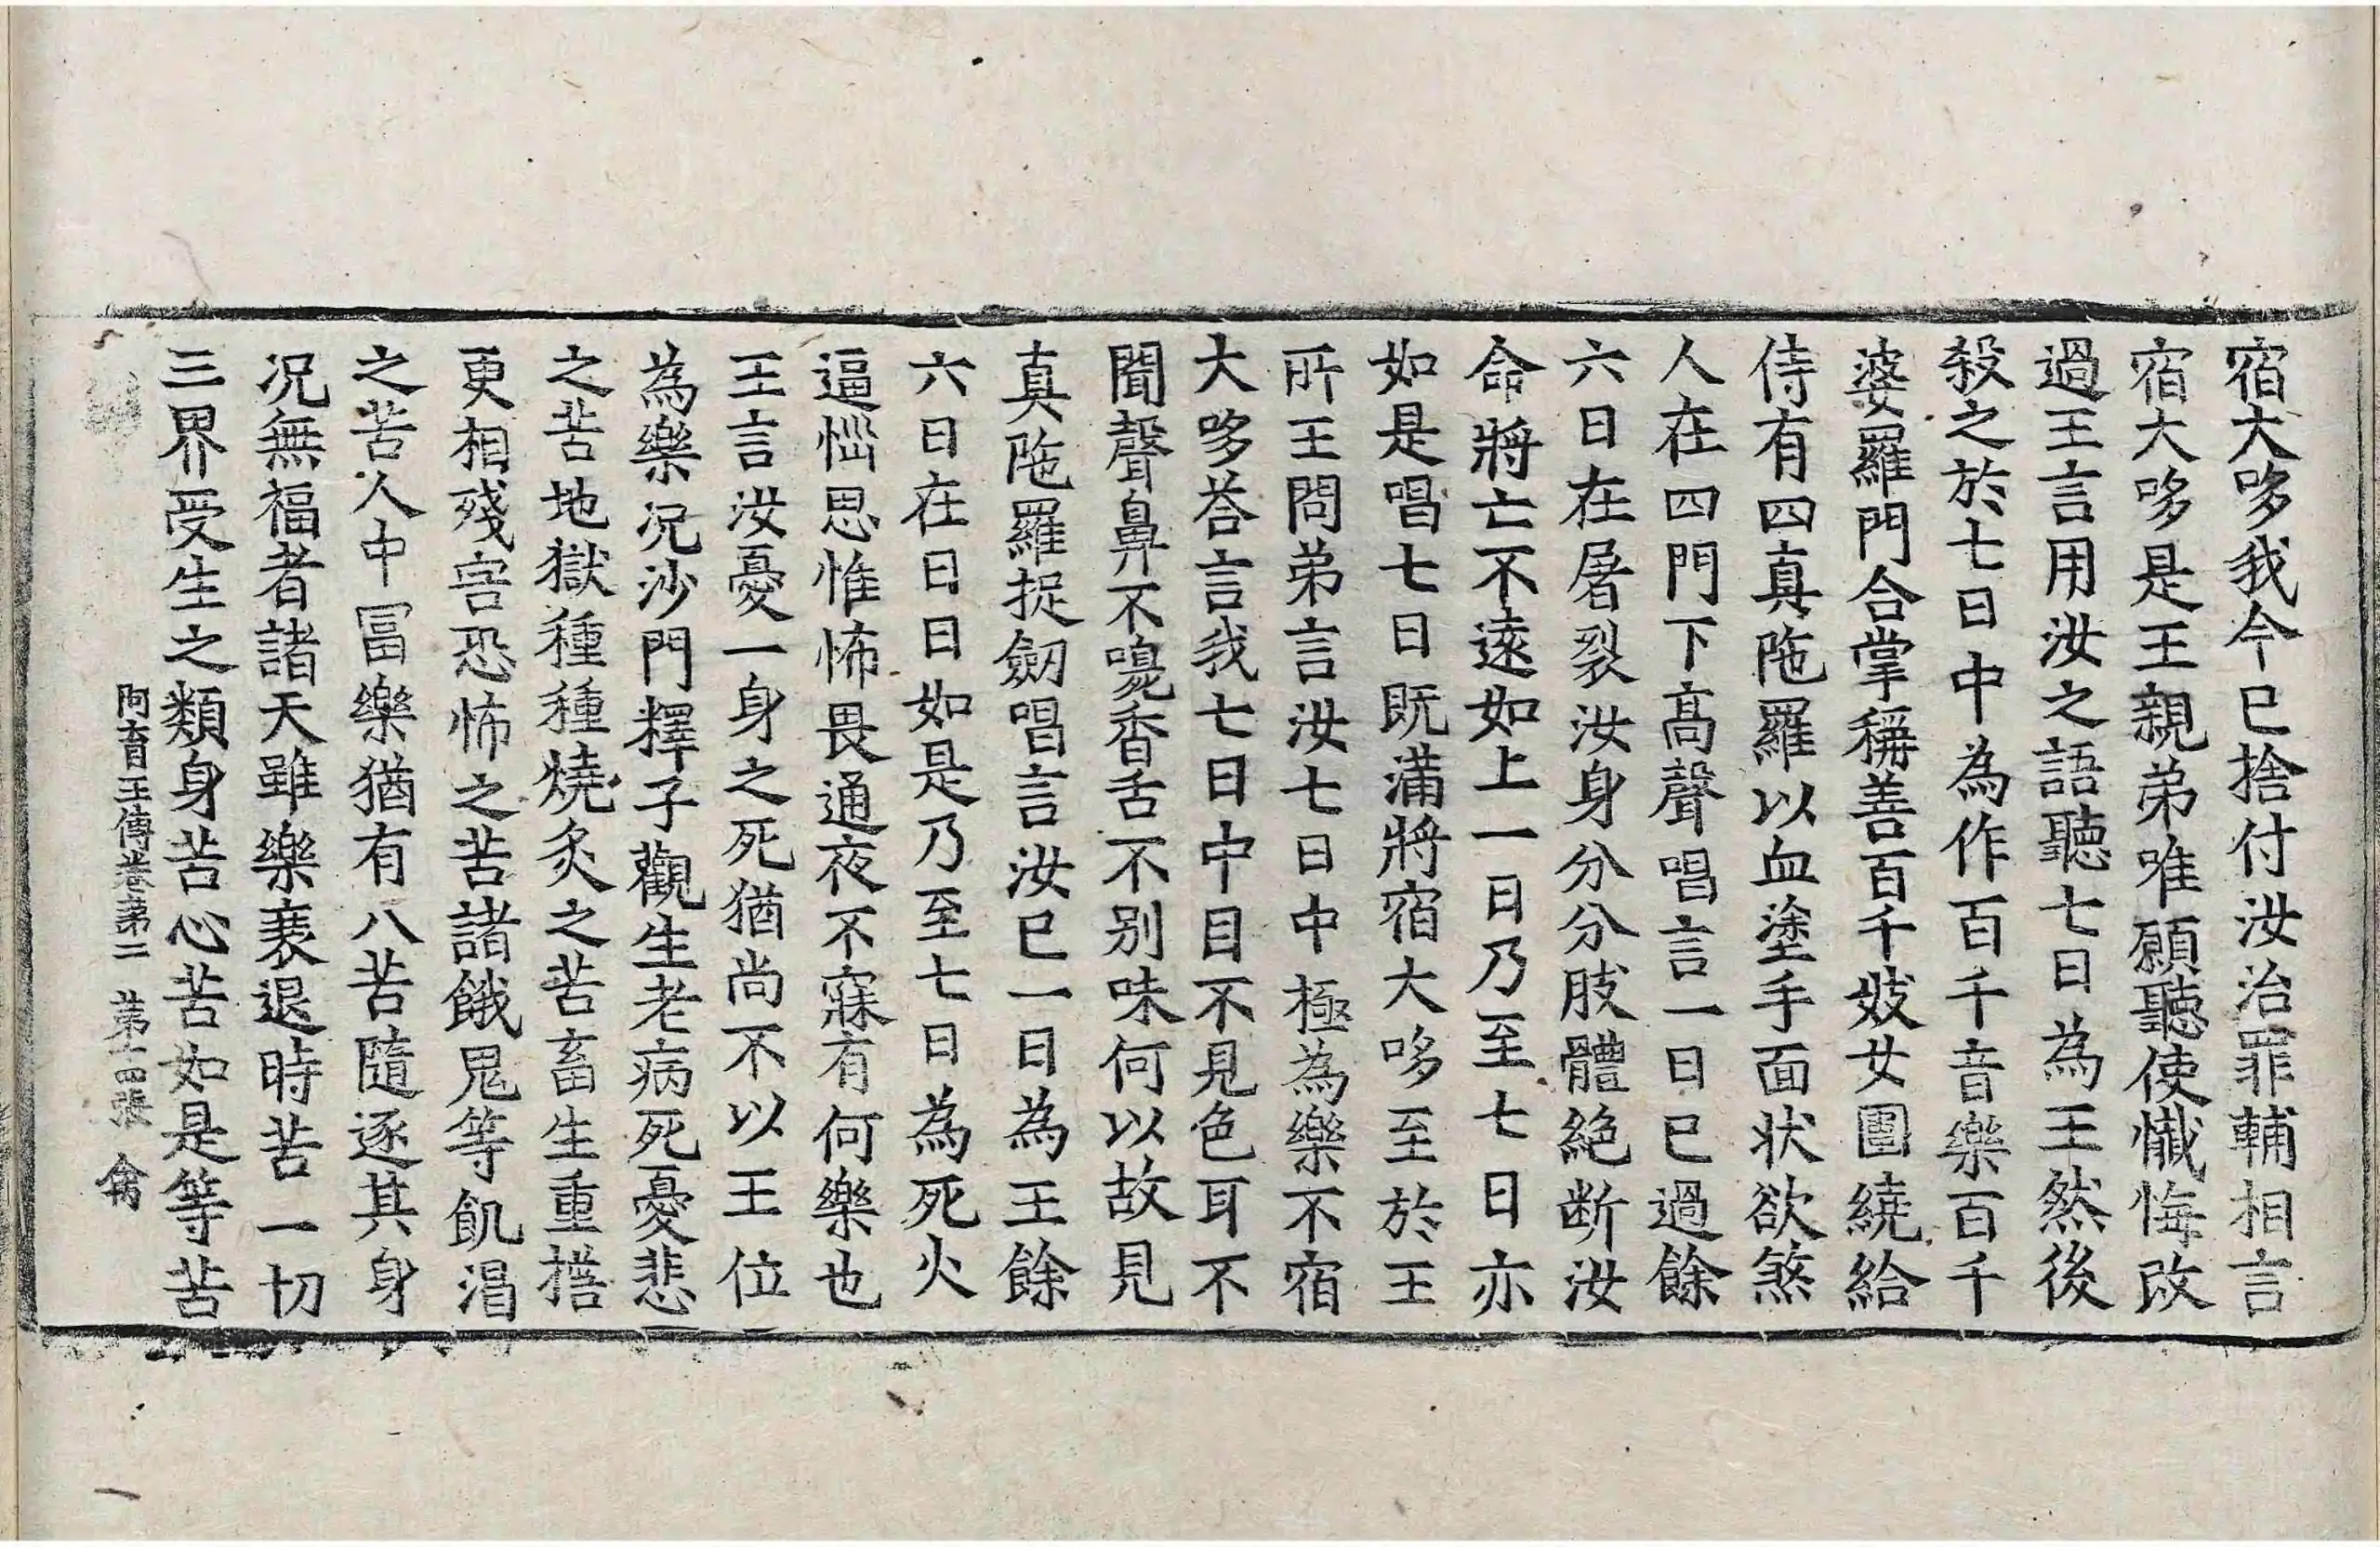 宿大哆我今已捨付汝治罪輔相言
宿大哆是王親弟唯願聽使懺悔改
過王言用汝之語聽七日為王然後
殺之於七日中為作百千音樂百千
婆羅門合掌稱善百千妓女圍繞給
侍有四真陁羅以血塗手面狀欲煞
人在四門下高聲唱言一日已過餘
六日在屠裂汝身分分肢體絕断汝
命將亡不遠如上一日乃至七日亦
如是唱七日既滿將宿大哆至於王
所王問弟言汝七日中極為樂不宿
大哆荅言我七日中目不見色耳不
聞聲鼻不嗅香舌不別味何以故見
真陁羅捉劒唱言汝已一日為王餘
六日在日日如是乃至七日為死火
逼惱思惟怖畏通夜不寐有何樂也
王言汝憂一身之死猶尚不以王位
為樂况沙門釋子觀生老病死憂悲
之苦地獄種種燒炙之苦畜生重擔
更相殘害恐怖之苦諸餓鬼等飢渴
之苦人中冨樂猶有八苦隨逐其身
况無福者諸天雖樂衰退時苦一切
三界受生之類身苦心苦如是等苦
阿育王傳卷第二 第十四張 禽